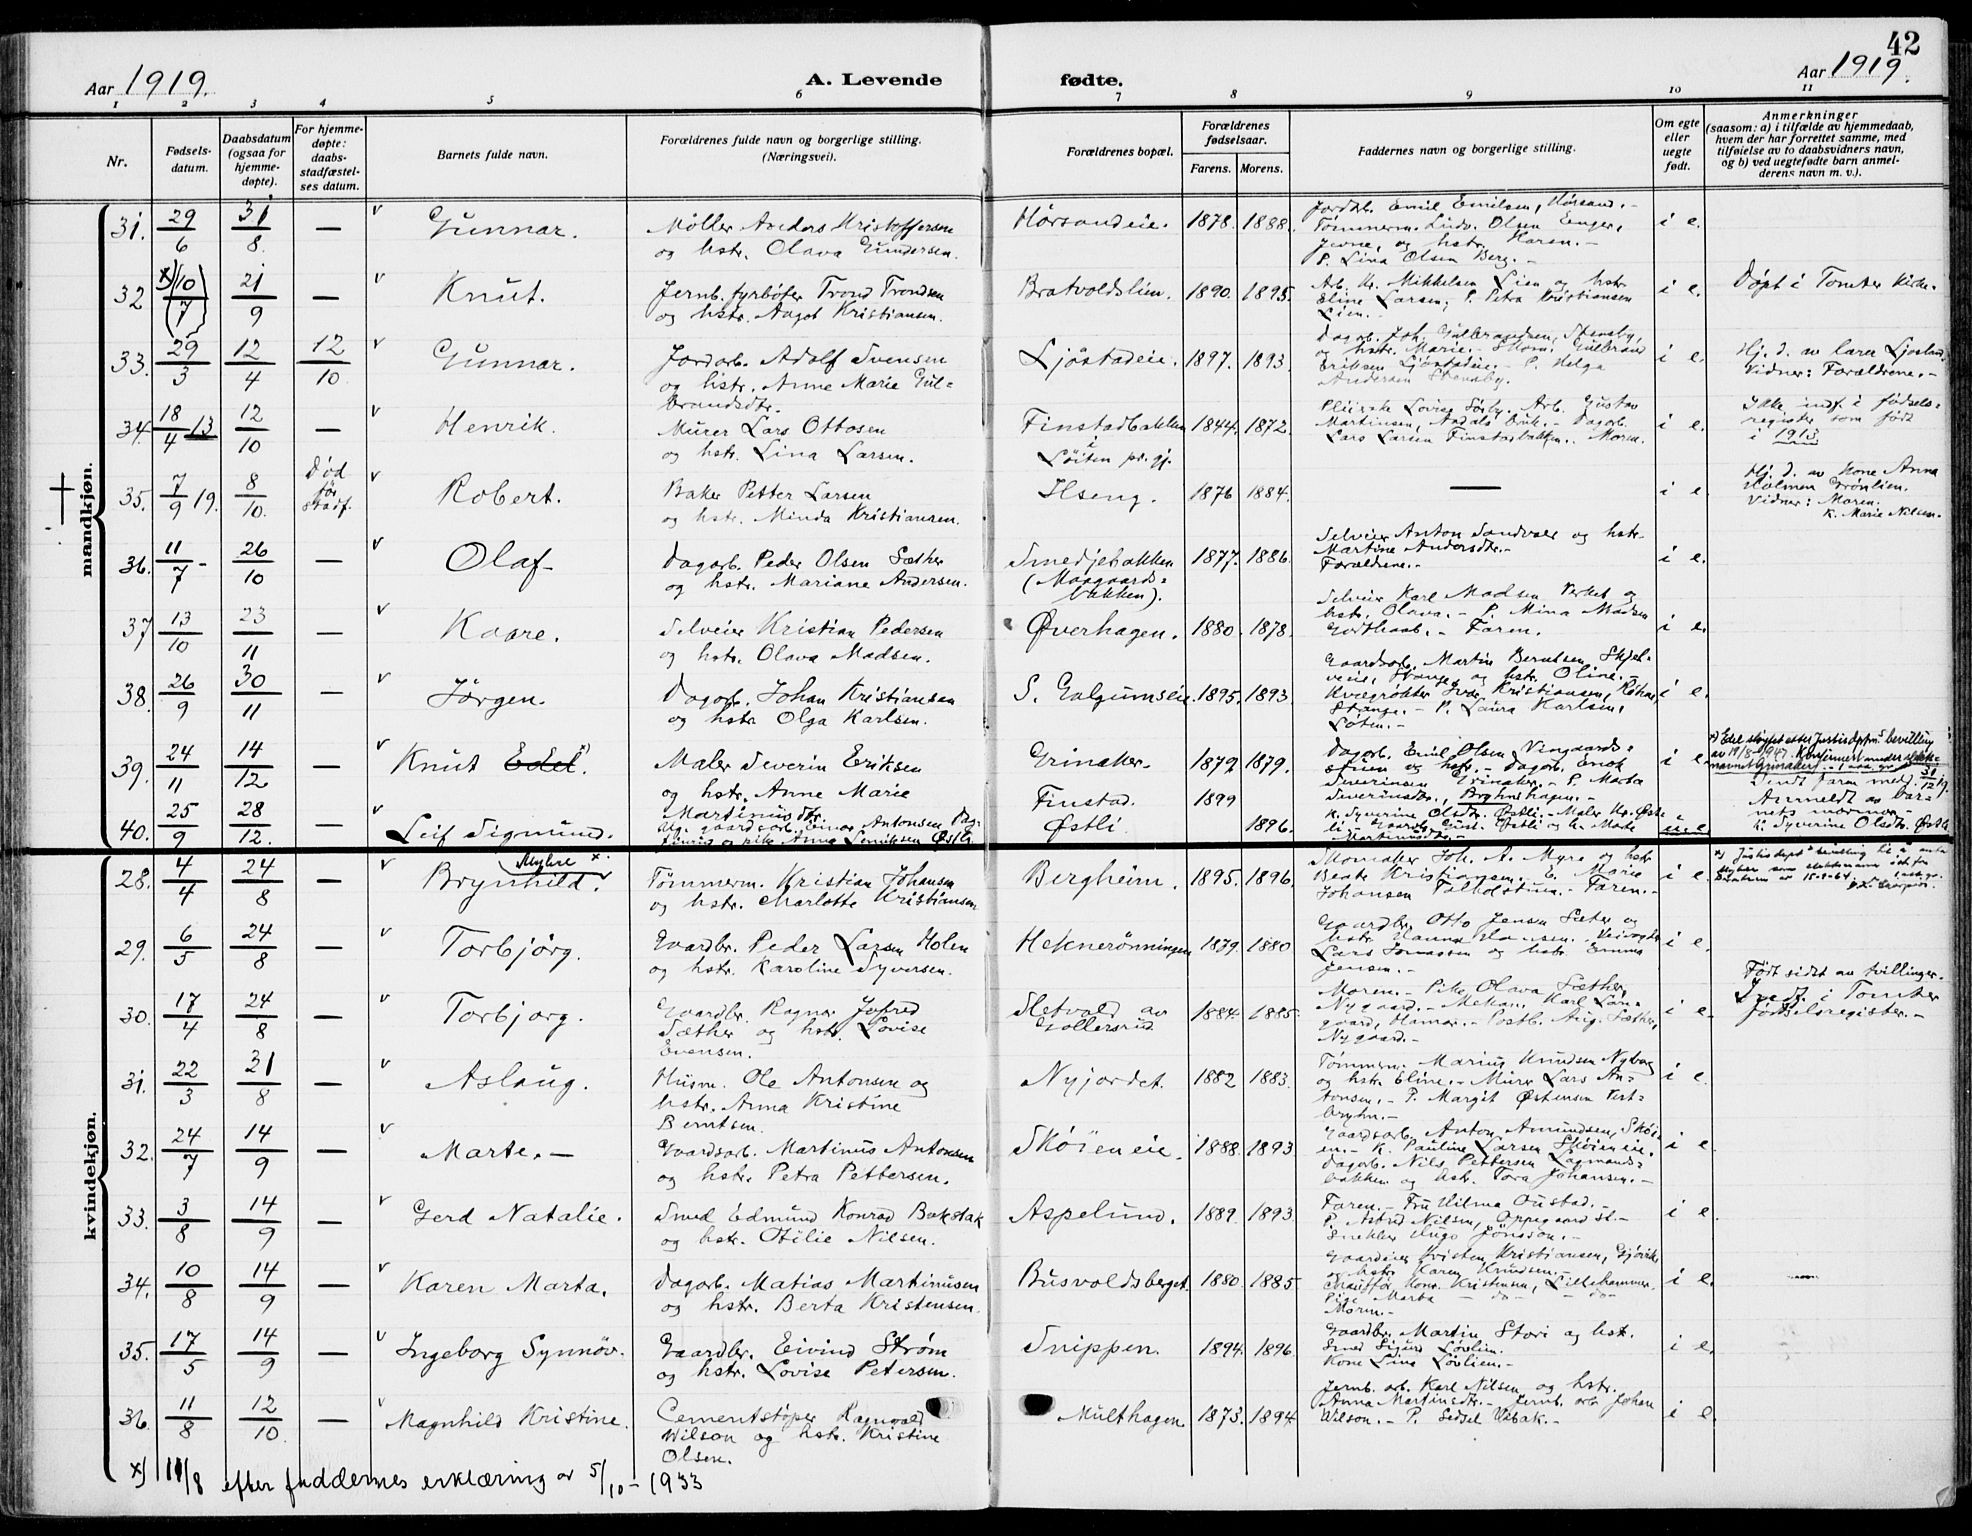 42
Aar 1919. A. Levende fødte. Aar 1919.
1 2 3 4 5 6 7 8 9 10 11
Nr.
Fødsels-
datum.
Daabsdatum
(ogsaa for
hjemme-
døpte).
For hjemme-
døpte:
daabs-
stadfæstel-
ses datum.
Barnets fulde navn.
Forældrenes fulde navn og borgerlige stilling.
(Næringsvei).
Forældrenes bopæl.
Forældrenes
fødselsaar.
Farens. Morens.
Faddernes navn og borgerlige stilling.
Om egte
eller
uegte
født.
Anmerkninger
(saasom: a) i tilfælde av hjemmedaab,
hvem der har forrettet samme, med
tilføielse av to daabsvidners navn,
og b) ved uegtefødte barn anmel-
derens navn m. v.).
mandkjøn.
31. 29/6 31/8 — Gunnar.
Møller Anders Kristoffersen
og hstr. Olava Gundersen.
Hørsandeie. 1878. 1888.
Jordarb. Emil Emilsen, Hørsand.-
Tømmerm. Ludv. Olsen Enger,
Jevne, og hstr. Karen.-
P. Lina Olsen Berg.-
i e.
32 x) (10/7) 21/9 — Knut.
Jernb. fyrbøter Trond Trondsen
og hstr. Aagot Kristiansen.
Bratvoldslien. 1890. 1895.
Arb. Kr. Mikkelsen Lien og hstr.
Eline Larsen; P. Petra Kristiansen
Lien.-
i e.
Døpt i Tomter Kirke.
33. 29/3 12/4 12/10 Gunnar.
Jordarb. Adolf Svensen
og hstr. Anne Marie Gul-
brandsdtr.
Ljøstadeie. 1897. 1893.
Dagarb. Joh. Gulbrandsen, Stensby,
og hstr. Marie. Skom. Gulbrand
Eriksen Ljøstadeie.- P. Helga
Andersen Stensby.
i e.
Hj. d. av lærer Ljøstad
Vidner: Forældrene.-
34. 18/4 13 12/10 — Henrik.
Murer Lars Ottosen
og hstr. Lina Larsen.
Finstadbakken
i
Løiten pr. gj.
1844. 1872.
Martinsen, Aadals bruk.- Dagarb.
Lars Larsen Finstadbakken. Moren.
i e.
Ikke indf. i fødsels-
register som født
i 1913
35. 7/9 19. 8/10. Død
før
stadf.
Robert.
Baker Petter Larsen
og hstr. Minda Kristiansen.
Ilseng. 1876 1884. —
i e.
Hj. d. av Kone Anna
Holmen Grønlien.
Vidner: Moren.
K. Marie Nilsen.
36. 11/7 - 26/10 — Olaf-
Dagarb. Peder Olsen Sæther
og hstr. Mariane Andersen.
Smedjebakken
(Maagaards-
bakken).
1877. 1886.
Selveier Anton Sandvær og hstr.
Martine Andersdtr.-
Forældrene.-
i e.
37 13/10 23/11 — Kaare.
Selveier Kristian Pedersen
og hstr. Olava Madsen.
Øverhagen. 1880. 1878.
Selveier Karl Madsen Verket og
hstr. Olava.- P. Mina Madsen
Godthaab.- Faren.
i e.
38. 26/9 30/11 — Jørgen.
Dagarb. Johan Kristiansen
og hstr. Olga Karlsen.
S. Galgumseie. 1895. 1893.
Gaardsarb. Martin Berntsen Skjel-
veie, Stange, og hstr. Oline.-
Kvægrøkter Ivar Kristiansen,
Stange.- P. Laura Karlsen,
Løten.-
i e.
39. 24/11 14/12 — Knut Edel. x)
Maler Severin Eriksen
og hstr. Anne Marie
Martinusdtr.
Grinaker. 1879. 1879.
Dagarb. Emil Olsen Vingaards-
stuen og hstr.- Dagarb. Enok
Severinsen Grinaker.- P. Marta
Severinsdtr., Brynhagen.-
i e.
x) Edel sløifet efter Justisdpm.s bevilling
av 19/8 1947.
40. 25/9 28/12. — Leif Sigmund.
Ug. gaardsarb. Einar Antonsen
og pike Anna Lovise Eriksen Østli.
Finstad. 1899
Østli. 1896.
K. Syverine Olsdtr. Østli.- Maler
u. e.
Anmeldt av bar-
nets mormor-
K. Syverine Olsdtr. Østli
kvindekjøn.
28. 4/4 24/8 — Brynhild. Myhre x.
Tømmerm. Kristian Johansen
og hstr. Charlotte Kristiansen
Bergheim. 1895. 1896.
Skomaker Joh. A. Myre og hstr.
Beate Kristiansen. E. Marie
Johansen Tolholstuen.- Faren.-
i e.
29. 6/5 24/8 — Torbjörg.
Gaardbr. Peder Larsen Holen
og hstr. Karoline Syversen.
Heknerønningen 1879. 1880
Gaardbr. Otto Jensen Sæter og
hstr. Hanna Hansen.
Lars Tomassen og hstr. Emma
Jensen.-
i e.
30. 17/4 24/8 — Torbjørg.
Gaardbr. Ragnar Jofred
Sæther og hstr. Lovise
Evensen.
Sletvold av
Gollersrud
1884. 1885.
Moren.- Pike Olava Sæther,
Nygaard.- Mekan. Karl Lan-
gaard, Hamar.- Postb. Aug. Sæther,
Nygaard.-
i e.
Født sidst av tvillinger.
Indf. i Tomter
fødselsregister.-
31. 22/3 31/8 — Aslaug.
Husm. Ole Antonsen og
hstr. Anna Kristine
Berntsen.
Nyjordet. 1882 1883.
Tømmerm. Marius Knudsen Nyborg
og hstr. Eline.- Murer Lars An-
tonsen.- P. Margit Østensen Vest-
bryhn.-
i e.
32. 24/7 14/9 — Marte.-
Gaardsarb. Martinus Antonsen
og hstr. Petra Pettersen.
Skøieneie. 1888. 1893.
Gaardsarb. Anton Amundsen, Skøi-
en.- K. Pauline Larsen Skøieneie.
Dagarb. Nils Pettersen Lagmands-
bakken og hstr. Tora Johansen.-
i e.
33. 3/8 14/9 — Gerd Natalie.
Smed Edmund Konrad Bakstak
og hstr. Otilie Nilsen.
Aspelund. 1889. 1893.
Faren.- Fru Vilma Oustad.-
P. Astrid Nilsen, Oppegaard st.-
Snekker Hugo Jönsson.-
i e.
34. 10/8 14/9 — Karen Marta.
Dagarb. Matias Martinusen
og hstr. Berta Kristensen.
Busvoldsberget. 1880. 1885.
Gaardeier Kristen Kristiansen, Gjøvik,
og hstr. Karen Knudsen.-
Chauffør Konr. Kristensen, Lillehammer.
Pige Marta — do — — do —
Moren.-
i e.
35. 17/5 14/9 — Ingeborg Synnöv.
Gaardbr. Eivind Strøm
og hstr. Lovise Petersen.
Snippen. 1894. 1896.
Gaardbr. Martin Stori og hst.
Smed Sigurd Løvlien.
Kone Lina Løvlien.-
i e.
36. 11/8 12/10. — Magnhild Kristine.
Cementstøper Ragnvald
Wilson og hstr. Kristine
Olsen.
Multhagen. 1873. 1894.
Jernb. arb. Karl Nilsen og hstr.
Anna Martinsdtr.- Jernb. arb Johan
Wilson.- P. Sedsel Vebak.-
i e.
x) 11/8 efter faddernes erklæring av 5/10-1933